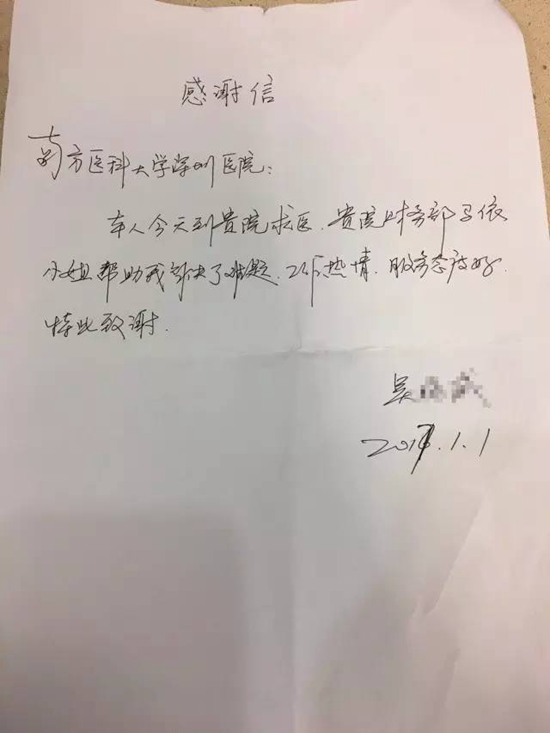 感谢信
南方医科大学深圳医院：
本人今天到贵院求医，贵院财务部马依
小姐帮助我解决了难题，工作热情，服务态度好，
特此致谢。
吴
2017.1.1